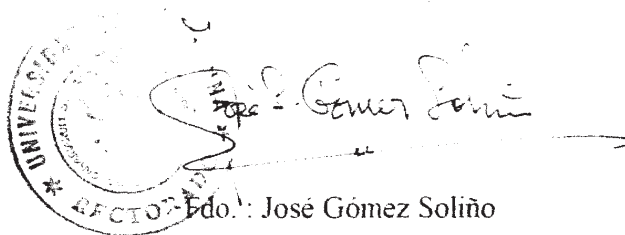 UNIVERSIDA
RECTORAD
José Gómez Soliño
Fdo.: José Gómez Soliño